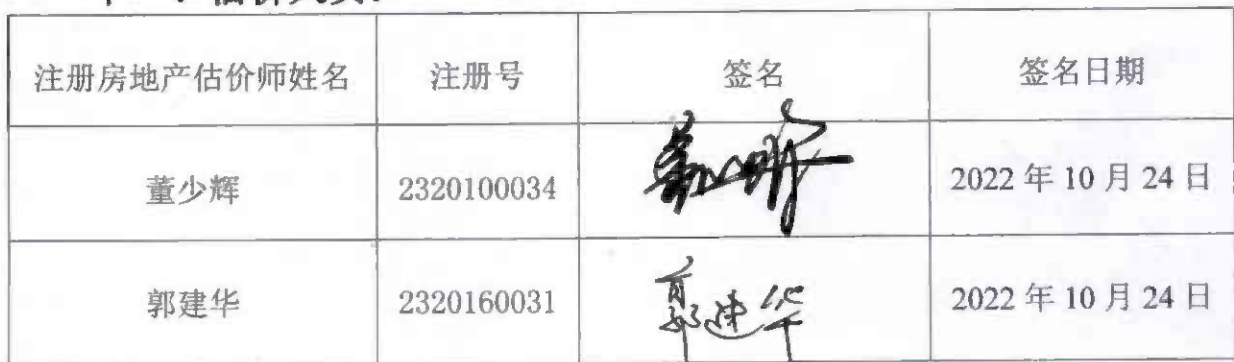 注册房地产估价师姓名 注册号 签名 签名日期
董少辉 2320100034 2022 年 10 月 24 日
郭建华 2320160031 郭建华 2022 年 10 月 24 日